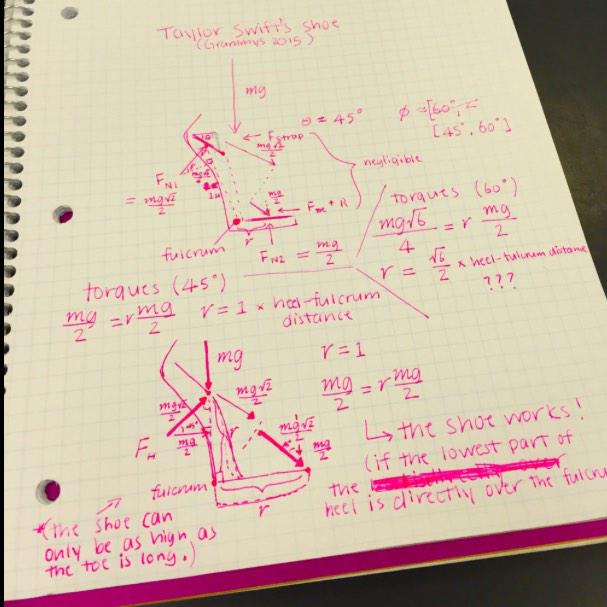 Taylor Swift's shoe
(Grammys 2015)
mg
θ = 45°
[45°, 60°]
← Fstrap
mg√2/2
negligible
FN1
= mg√2/2
mg/2
fulcrum
r
FN2 = mg/2
torques (60°)
mg√6/4 = r mg/2
r = √6/2 × heel-fulcrum distance
???
torques (45°)
mg/2 = r mg/2
r = 1 × heel-fulcrum
distance
mg
r = 1
mg√2/2
mg√2/2
mg√2/2
mg/2
mg/2
mg/2 = r mg/2
fulcrum
r
r
↳ the shoe works!
(if the lowest part of
the
heel is directly over the
*(the shoe can
only be as high as
the toe is long.)